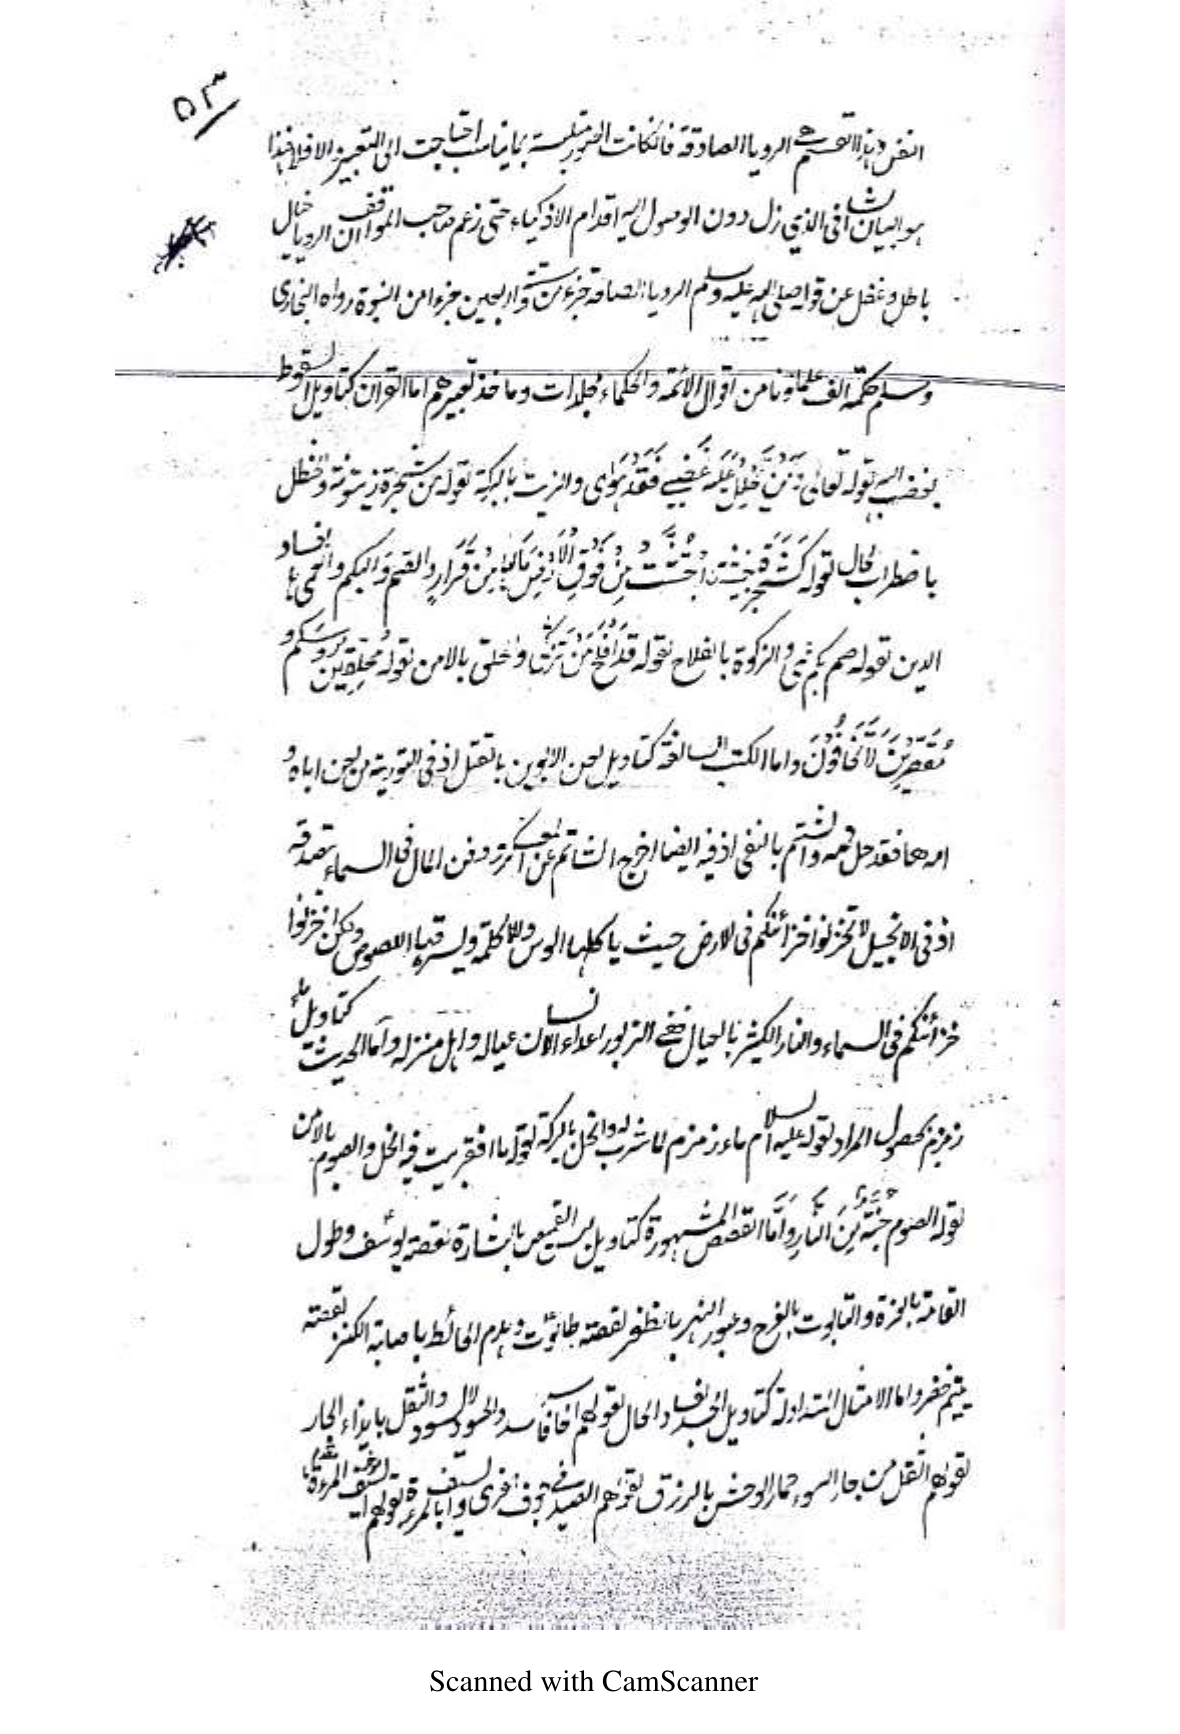 ٥٣
النفس وهذا القسم هي الرويا الصادقة فان كانت الصور متلبسة بما يناسب احتاجت الى التعبير والا فلا فهذا
هو البيان الشافى الذي زل دون الوصول اليه اقدام الاذكياء حتى زعم صاحب المواقف ان الرويا خيال
باطل وغفل عن قوله صلى الله عليه وسلم الرويا الصادقة جزء من ستة واربعين جزءا من النبوة رواه البخارى
ومسلم حكمة الف علماؤنا من اقوال الائمة والحكماء مجلدات وماخذ تعبيرهم اما القران كتاويل السقوط
بغضب الله لقوله تعالى وَمَنْ يَحْلِلْ عَلَيْهِ غَضَبِي فَقَدْ هَوٰى والزيت بالبركة لقوله من شجرة زيتونة والحنظل
باضطراب الحال لقوله كَشَجَرَةٍ خَبِيْثَةِ نِ اجْتُثَّتْ مِنْ فَوْقِ الْاَرْضِ مَا لَهَا مِنْ قَرَارٍ والصمم والبكم والعمى بفساد
الدين لقوله صم بكم عمى والزكوة بالفلاح لقوله قَدْ اَفْلَحَ مَنْ تَزَكّٰى والحلق بالامن لقوله مُحَلِّقِيْنَ رُءُوْسَكُمْ و
مُقَصِّرِيْنَ لَا تَخَافُوْنَ واما الكتب السالفة كتاويل لعن الابوين بالقتل اذ فى التورية من لعن اباه و
امه فقد حل دمه والشتم بالنفى اذ فيه ايضا اخرج الشاتم عن المعسكر ودفن المال فى السماء بتصدقه
اذ فى الانجيل لا تخزنوا خزائنكم فى الارض حيث ياكلها السوس والاكلة ويسرقها اللصوص ولكن اخزنوا
خزائنكم فى السماء والفار الكثير بالعيال ففى الزبور اعداء الانسان عياله واهل منزله واما الحديث كتاويل ماء
زمزم بحصول المراد لقوله عليه السلام ماء زمزم لما شرب له والخل بالبركة لقوله ما افقر بيت فيه الخل والصوم بالامن
لقوله الصوم جُنَّةٌ مِنَ النَّارِ وَاَمَّا القصص المشهورة كتاويل القميص بالبشارة لقصة يوسف وطول
القامة بالعزة والتابوت بالفرح وعبور النهر بالظفر لقصة طالوت وهدم الحائط باصابة الكنز لقصة
يتيم خضر واما الامثال المتداولة كتاويل بفساد الحال لقولهم والحسود لا يسود والثقل بايذاء الجار
لقولهم اثقل من جار السوء وحمار الوحش بالرزق لقولهم الصيد فى جوف الفرى والسقف بالمرءة لقولهم